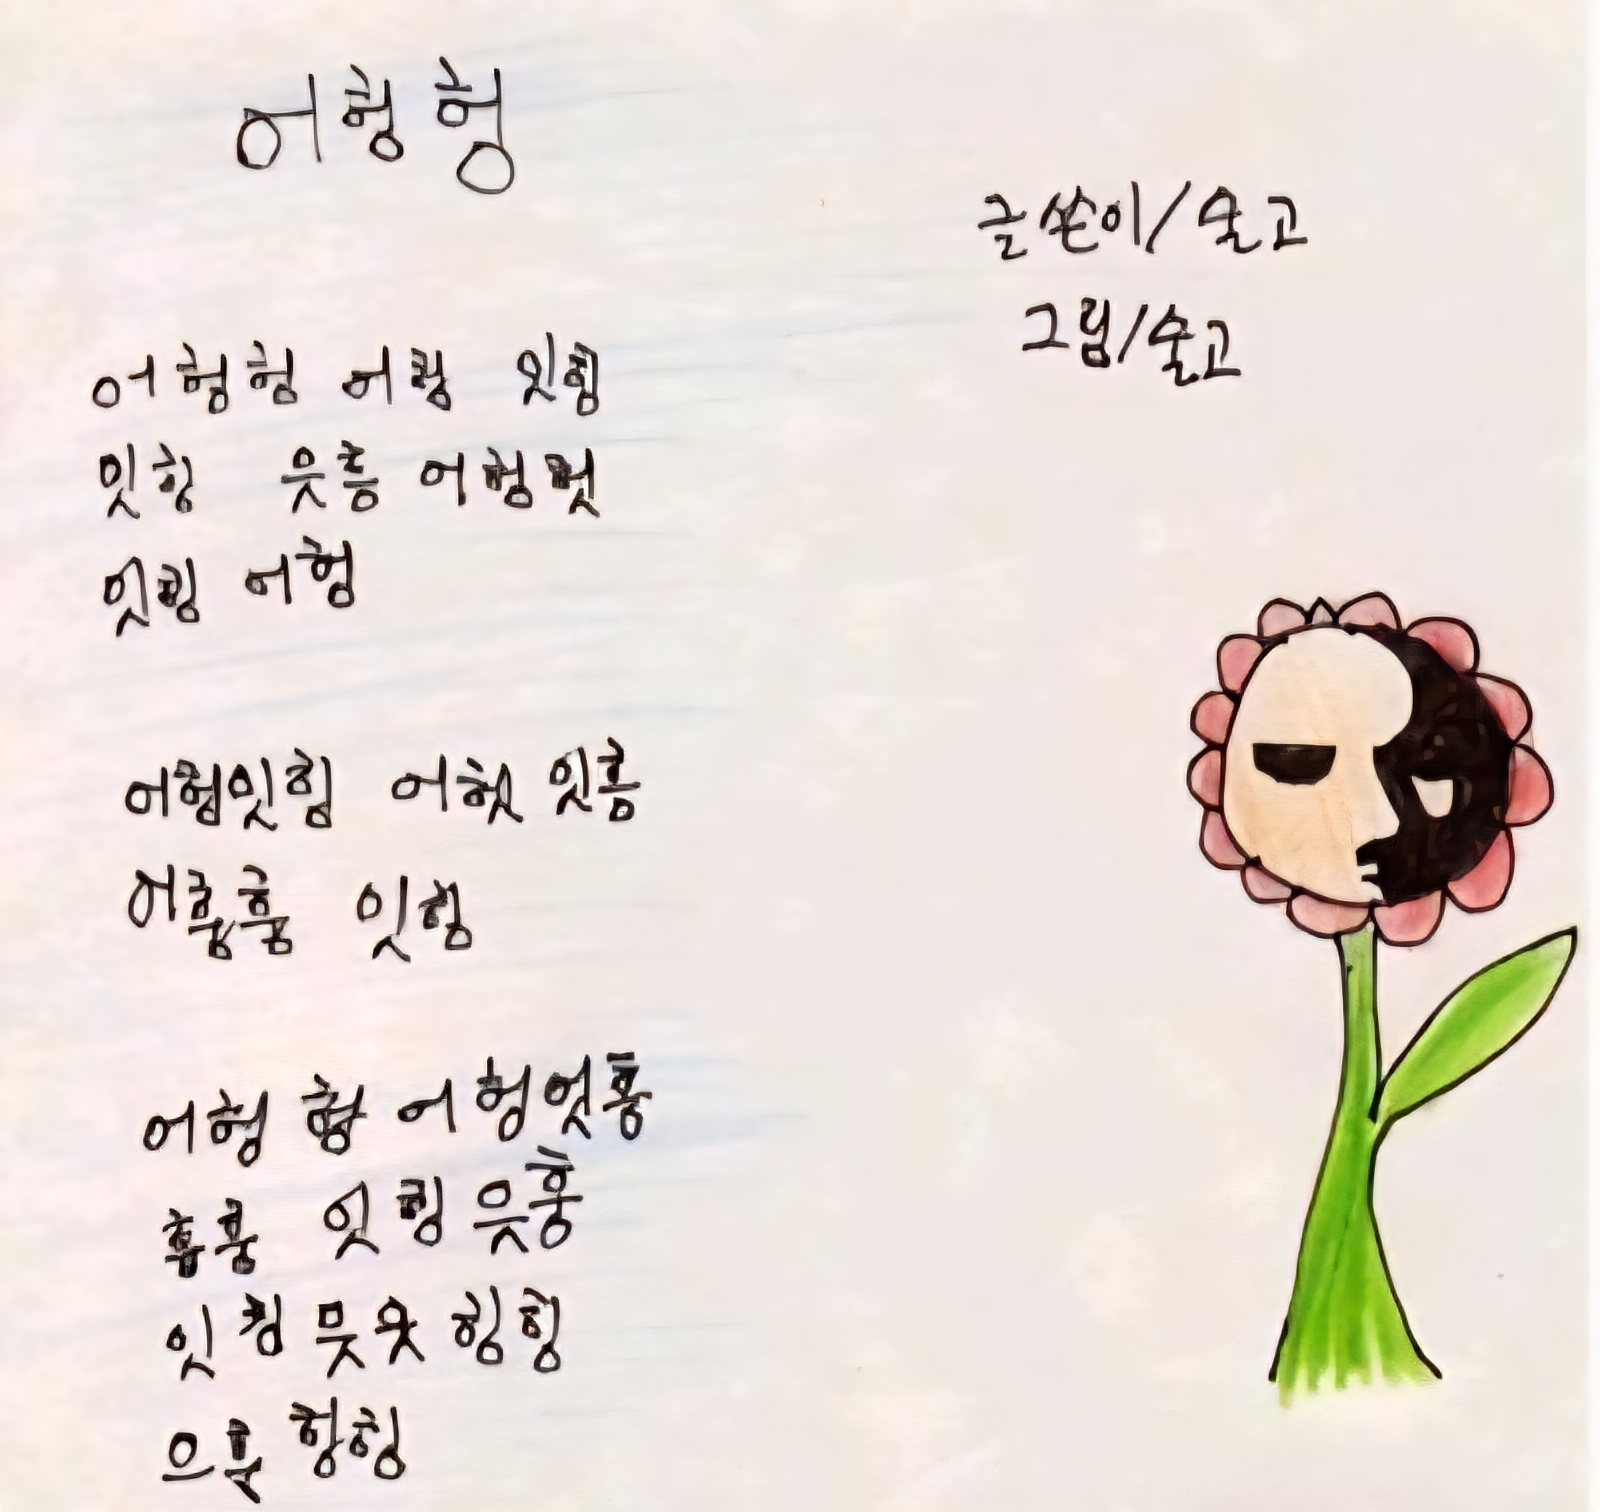 어헝헝
글쓴이/숲고
그림/숲고
어헝헝 어헝 잇힝
밋힝 읏흥 어헝헛
잇힝 어헝
어험잇힘 어헛 잇흠
어훔훔 잇힝
어헝 헝 어헝엇흥
흥흥 잇힝 읏훙
잇힝 믓웃 힝힝
으흥 항힝